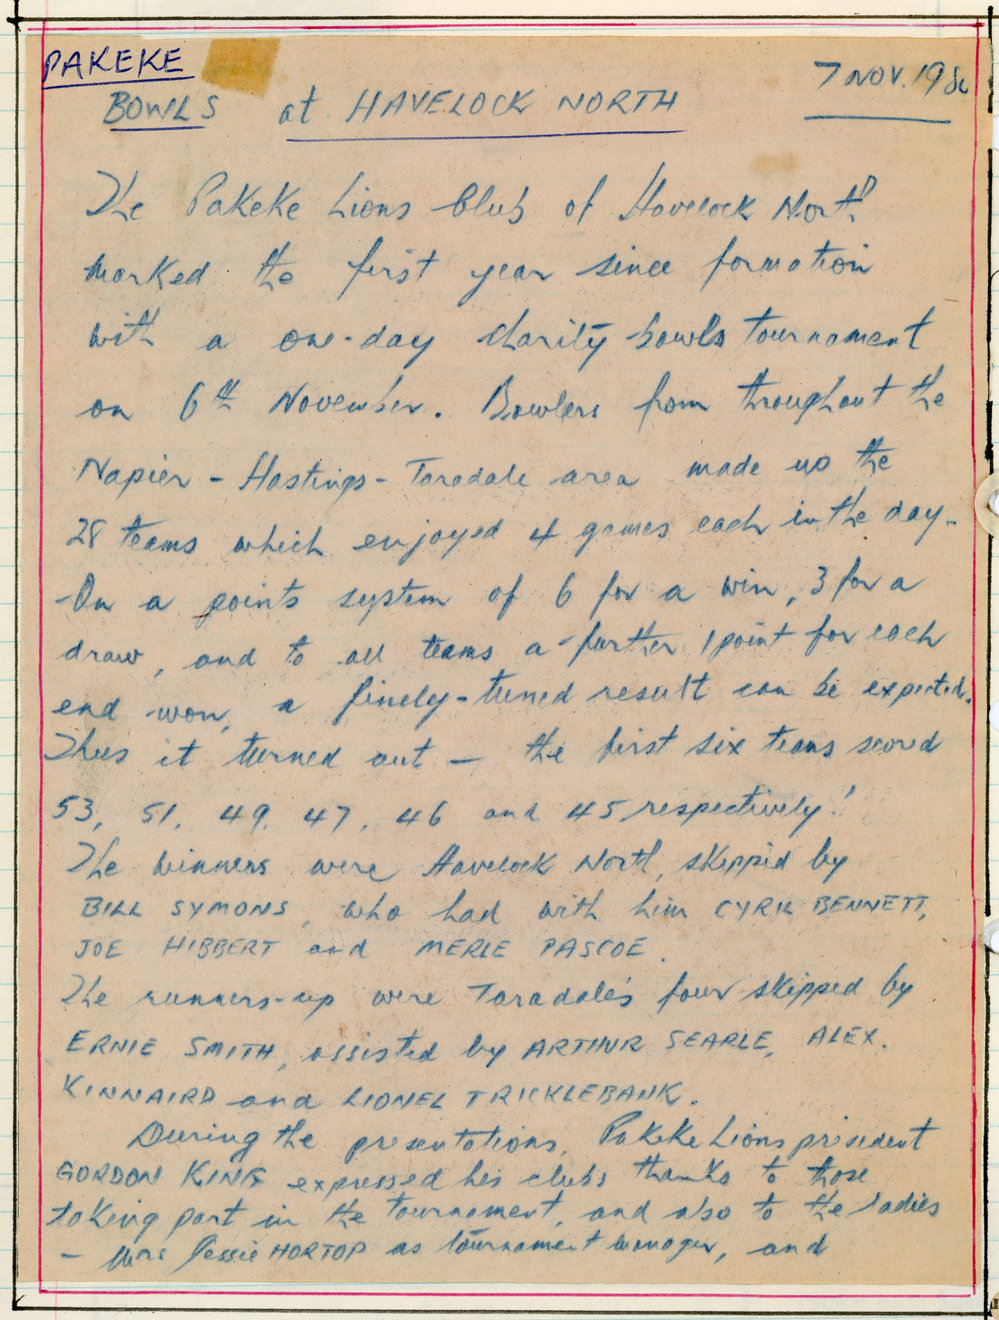 PAKEKE
7 NOV. 198
BOWLS at HAVELOCK NORTH
The Pakeke Lions Club of Havelock North
marked the first year since formation
with a one-day charity bowls tournament
on 6th November. Bowlers from throughout the
Napier - Hastings - Taradale area made up the
28 teams which enjoyed 4 games each in the day.
On a points system of 6 for a win, 3 for a
draw, and to all teams a further 1 point for each
end won, a finely-tuned result can be expected.
Thus it turned out - the first six teams scored
53, 51, 49, 47, 46 and 45 respectively!
The winners were Havelock North, skipped by
BILL SYMONS, who had with him CYRIL BENNETT,
JOE HIBBERT and MERLE PASCOE.
The runners-up were Taradale's four skipped by
ERNIE SMITH, assisted by ARTHUR SEARLE, ALEX.
KINNAIRD and LIONEL TRICKLEBANK.
During the presentations, Pakeke Lions president
GORDON KING expressed his clubs thanks to those
taking part in the tournament, and also to the ladies
- Mrs Jessie HORTOP as tournament manager, and